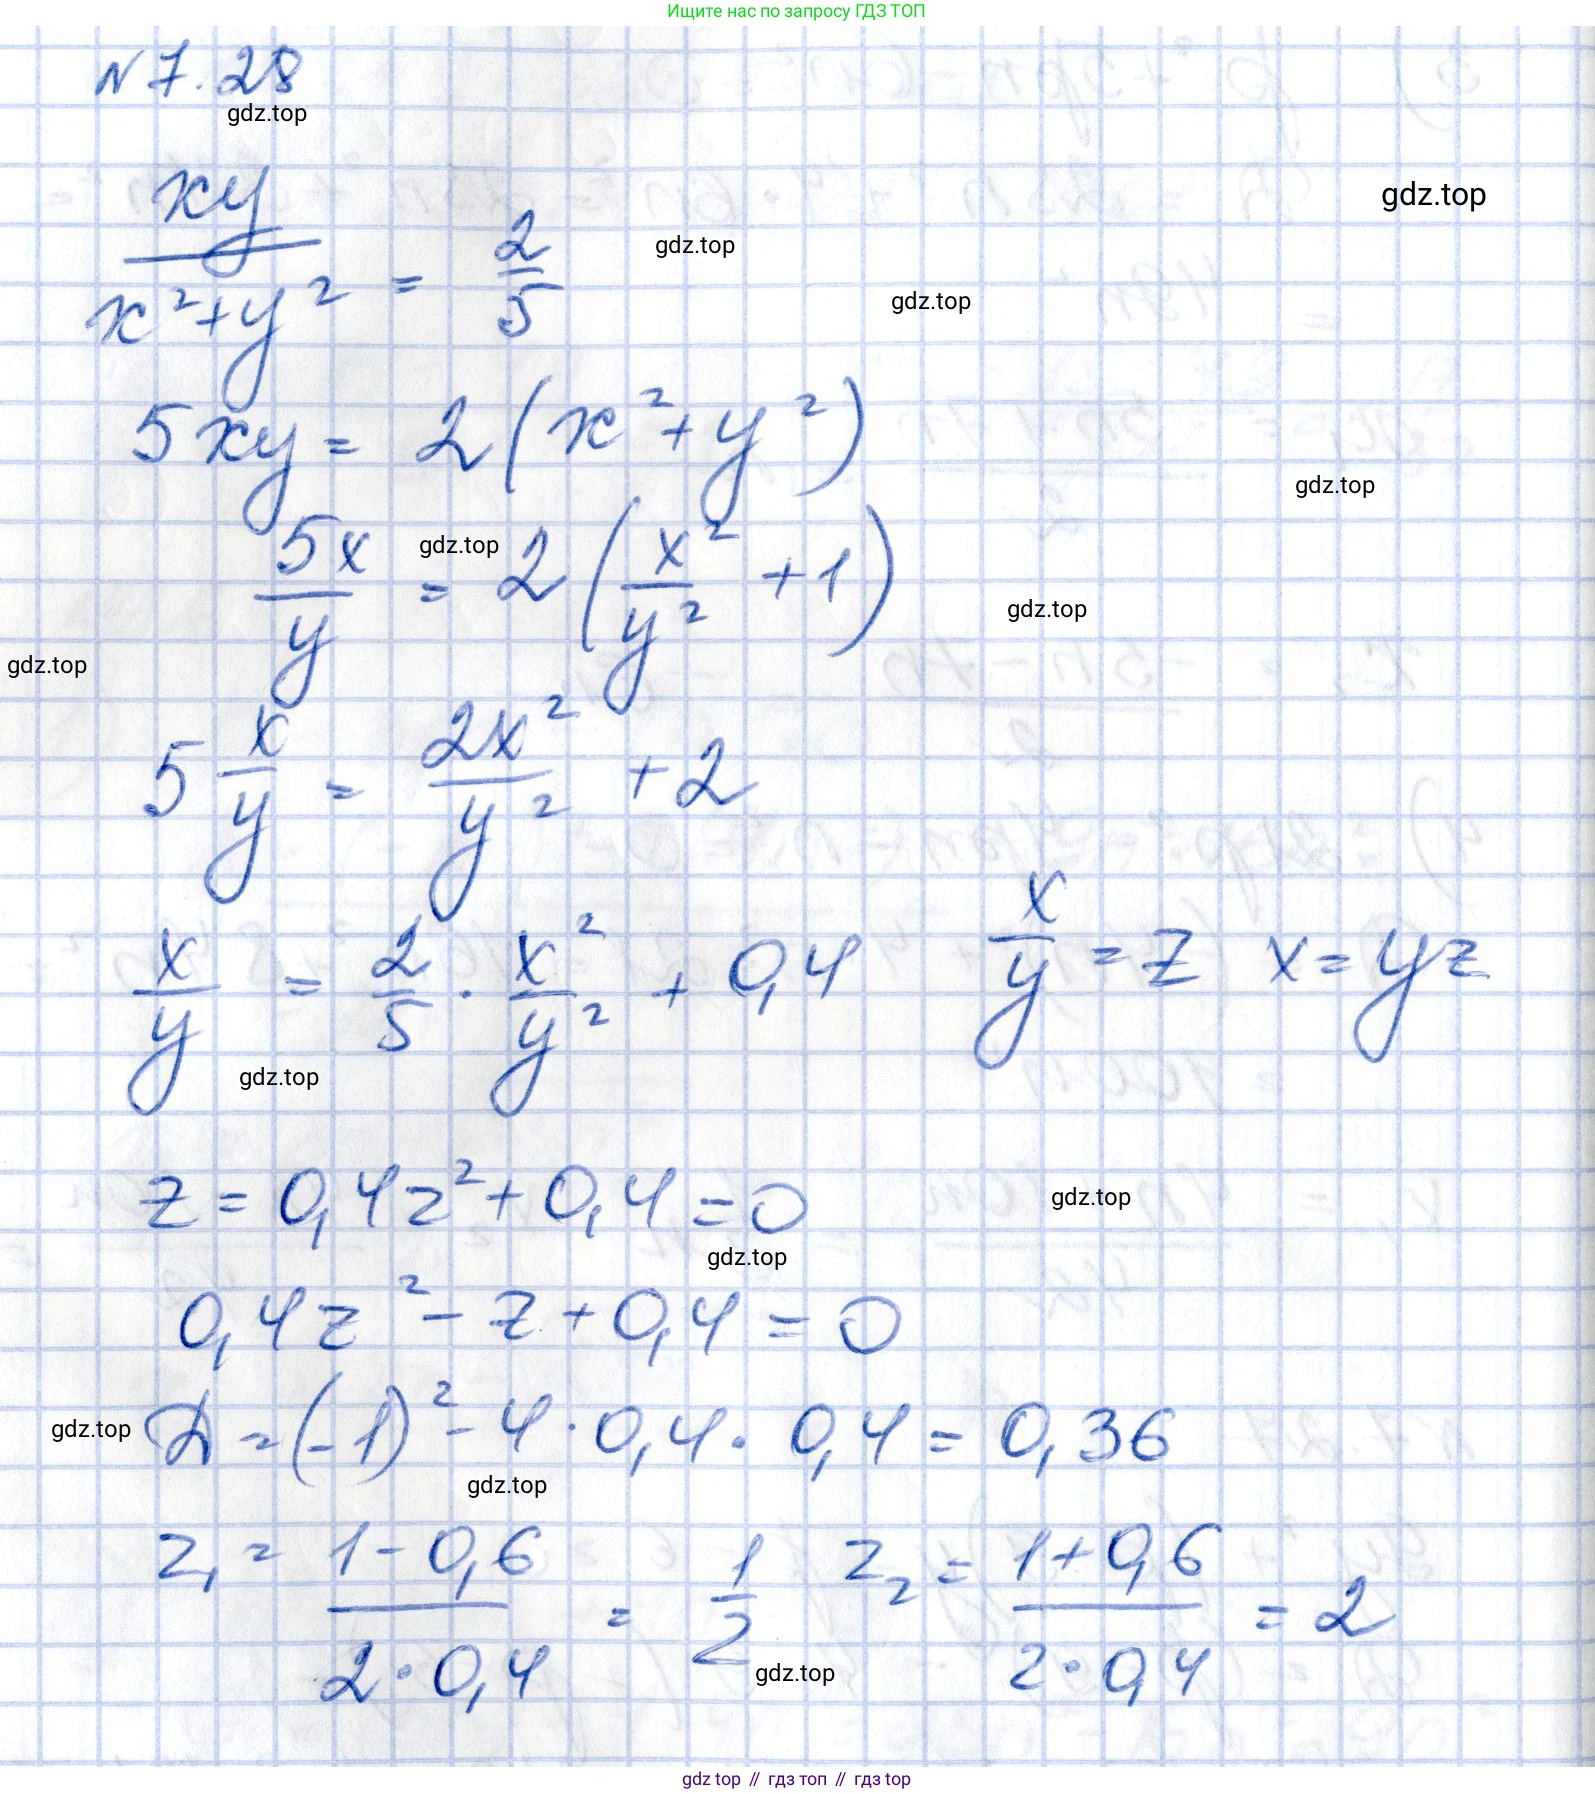 Ищите нас по запросу ГДЗ ТОП
N 7.28
gdz.top
xy / (x² + y²) = 2/5
gdz.top
gdz.top
gdz.top
5xy = 2(x² + y²)
gdz.top
5x/y = 2(x²/y² + 1)
gdz.top
gdz.top
gdz.top
5 x/y = 2x²/y² + 2
x/y = 2/5 · x²/y² + 0,4   x/y = z   x = yz
gdz.top
z = 0,4z² + 0,4 = 0
gdz.top
gdz.top
0,4z² - z + 0,4 = 0
D = (-1)² - 4 · 0,4 · 0,4 = 0,36
gdz.top
gdz.top
z₁ = (1 - 0,6) / (2 · 0,4) = 1/2   z₂ = (1 + 0,6) / (2 · 0,4) = 2
gdz.top
gdz top // гдз топ // gdz.top